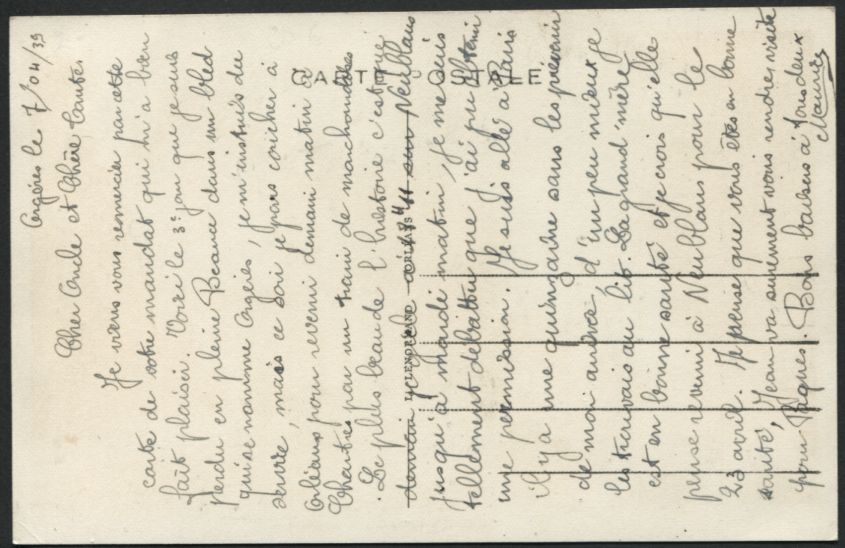 Orgères le 7/04/39
Cher Oncle et Chère Tante
Je viens vous remercier par cette
carte de votre mandat qui m'a bien
fait plaisir. Voici le 3e jour que je suis
perdu en pleine Beauce dans un bled
qui se nomme Orgères, je m'instruis du
service, mais ce soir je pars coucher à
Orléans pour revenir demain matin à
Chartres par un train de marchandises
Le plus beau de l'histoire c'est que
demain je décolle à 4H sur Neublans
jusqu'à mardi matin, je me suis
tellement débattu que j'ai pu obtenir
une permission. Je suis allé à Paris
il y a une quinzaine sans les prévenir
de mon arrivée, d'un peu mieux je
les trouvais au lit. La grand'mère
est en bonne santé et je crois qu'elle
pense revenir à Neublans pour le
23 avril. Je pense que vous êtes en bonne
santé, Jean va surement vous rendre visite
pour Pâques. Bons baisers à tous deux
Maurice
CARTE POSTALE
LECLENCHÉ